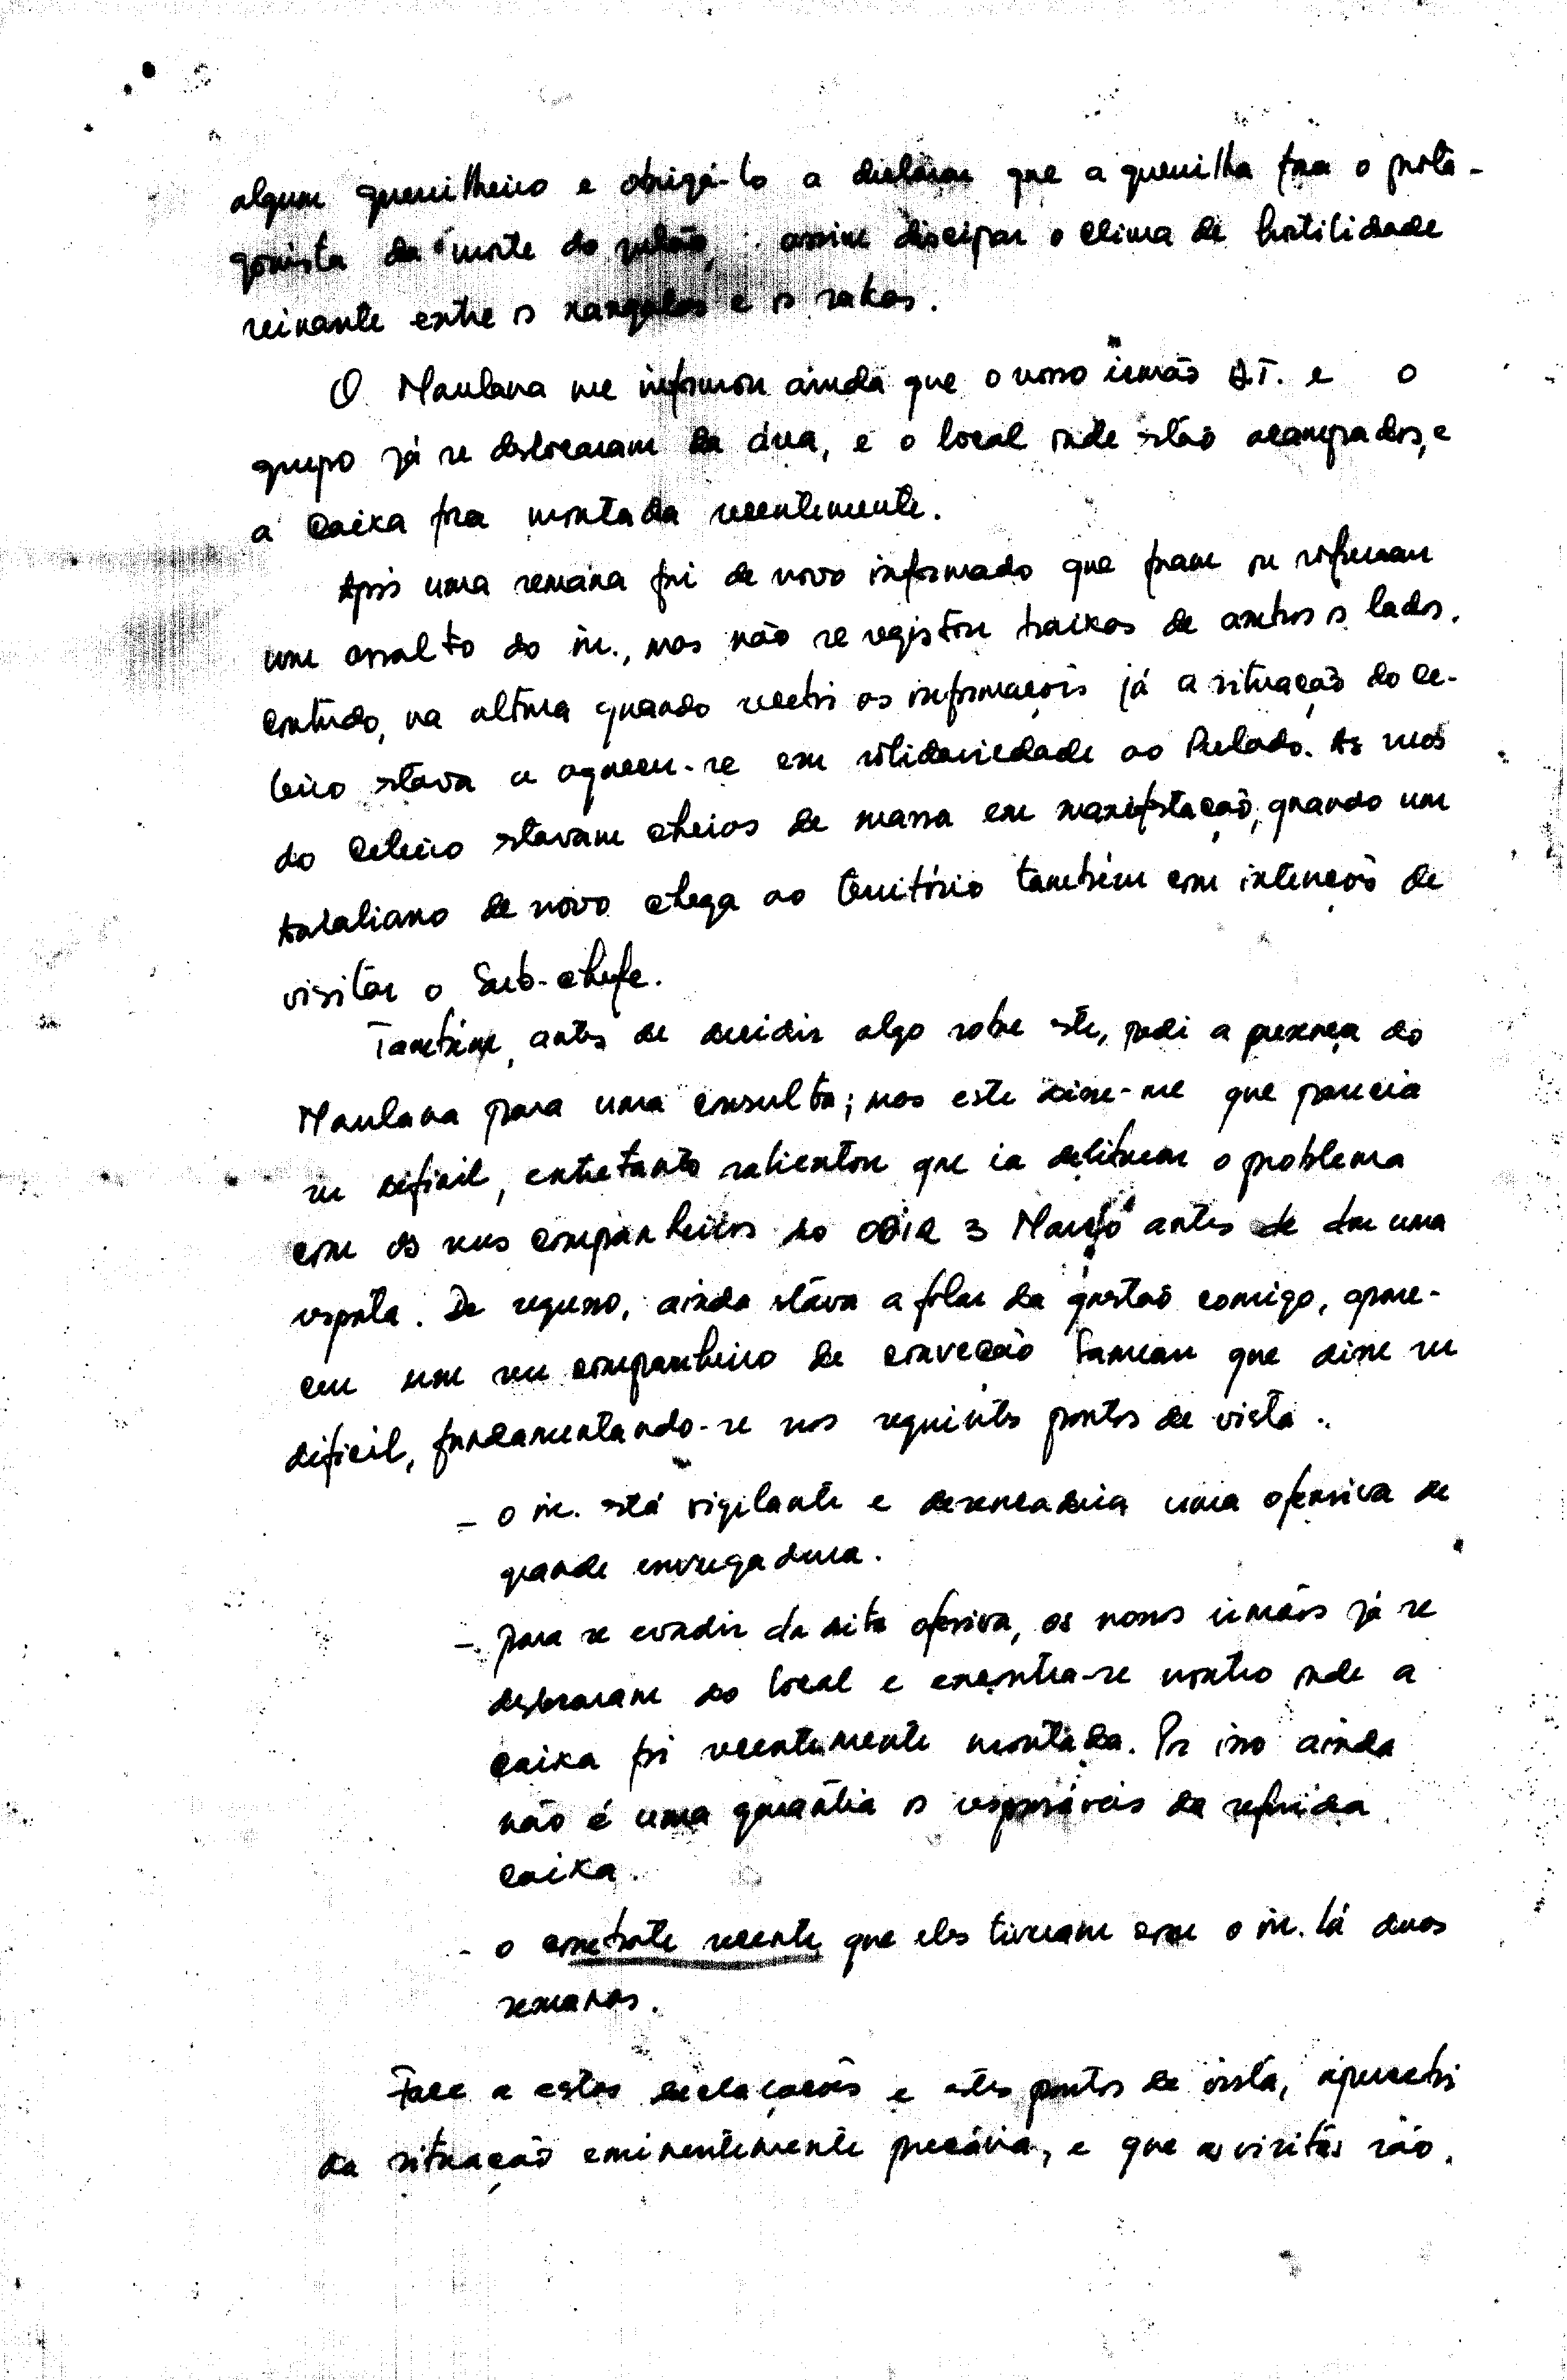 algum guerrilheiro e obrigá-lo a declarar que a guerrilha fora o prota-
gonista da morte do assim discipar o clima de hostilidade
reinante entre os e os
O Maulana me informou ainda que o nosso irmão A.T. e o
grupo já se deslocaram da área, e o local onde estão acampados, e
a caixa fora montada recentemente.
Após uma semana fui de novo informado que foram ou sofreram
um assalto do in., mas não se registou baixas de ambos os lados.
Contudo, na altura quando recebi as informações já a situação do Ce-
leiro estava a aquecer-se em solidariedade ao Prelado. As ruas
do Celeiro estavam cheias de massa em manifestação, quando um
Australiano de novo chega ao território também com intenções de
visitar o Sub-chefe.
Também, antes de decidir algo sobre este, pedi a presença do
Maulana para uma consulta; mas este disse-me que parecia
ser dificil, entretanto salientou que ia deliberar o problema
com os seus companheiros do 3 Março antes de dar uma
resposta. De regresso, ainda estava a falar da questão comigo, apare-
ceu um seu companheiro de que disse ser
dificil, fundamentando-se nos seguintes pontos de vista:
- o in. está vigilante e desencadeia uma ofensiva de
grande envergadura.
- para se evadir da dita ofensiva, os nossos irmãos já se
deslocaram do local e encontra-se noutro onde a
caixa foi recentemente montada. Por isso ainda
não é uma garantia os responsáveis da referida
caixa.
- o combate recente que eles tiveram com o in. há duas
semanas.
Face a estas declarações e estes pontos de vista, apercebi
da situação eminentemente precária, e que as visitas são.